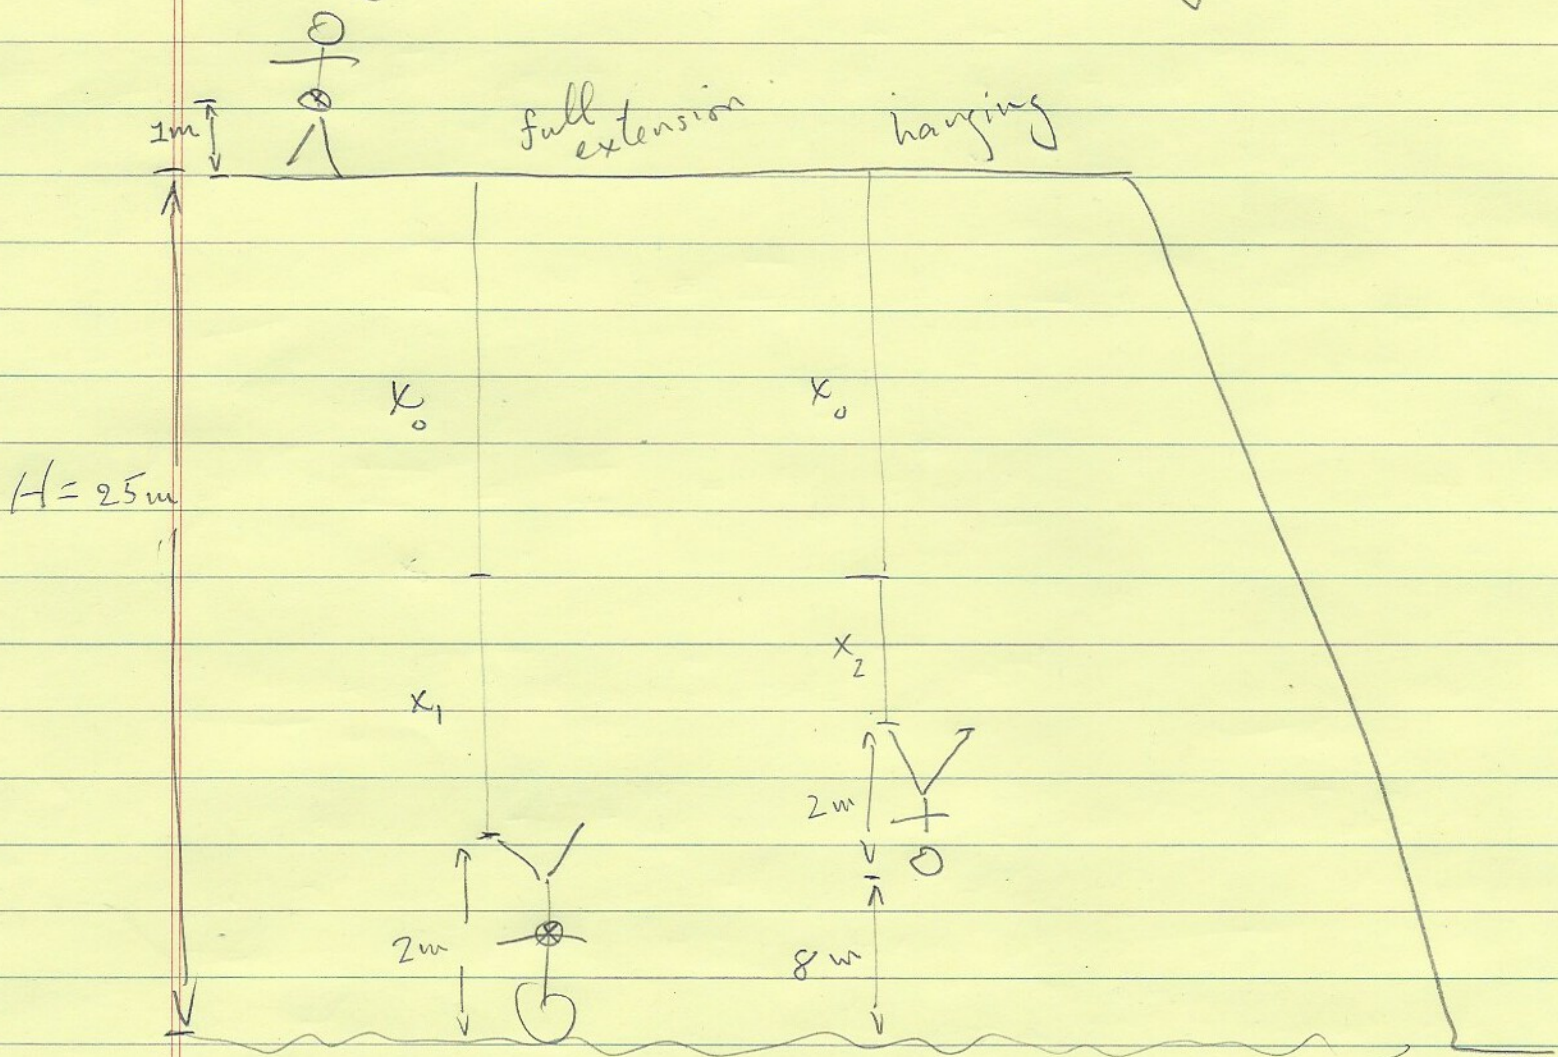 1m
full
extension
hanging
x₀
x₀
H = 25m
x₂
x₁
2m
2m
8m